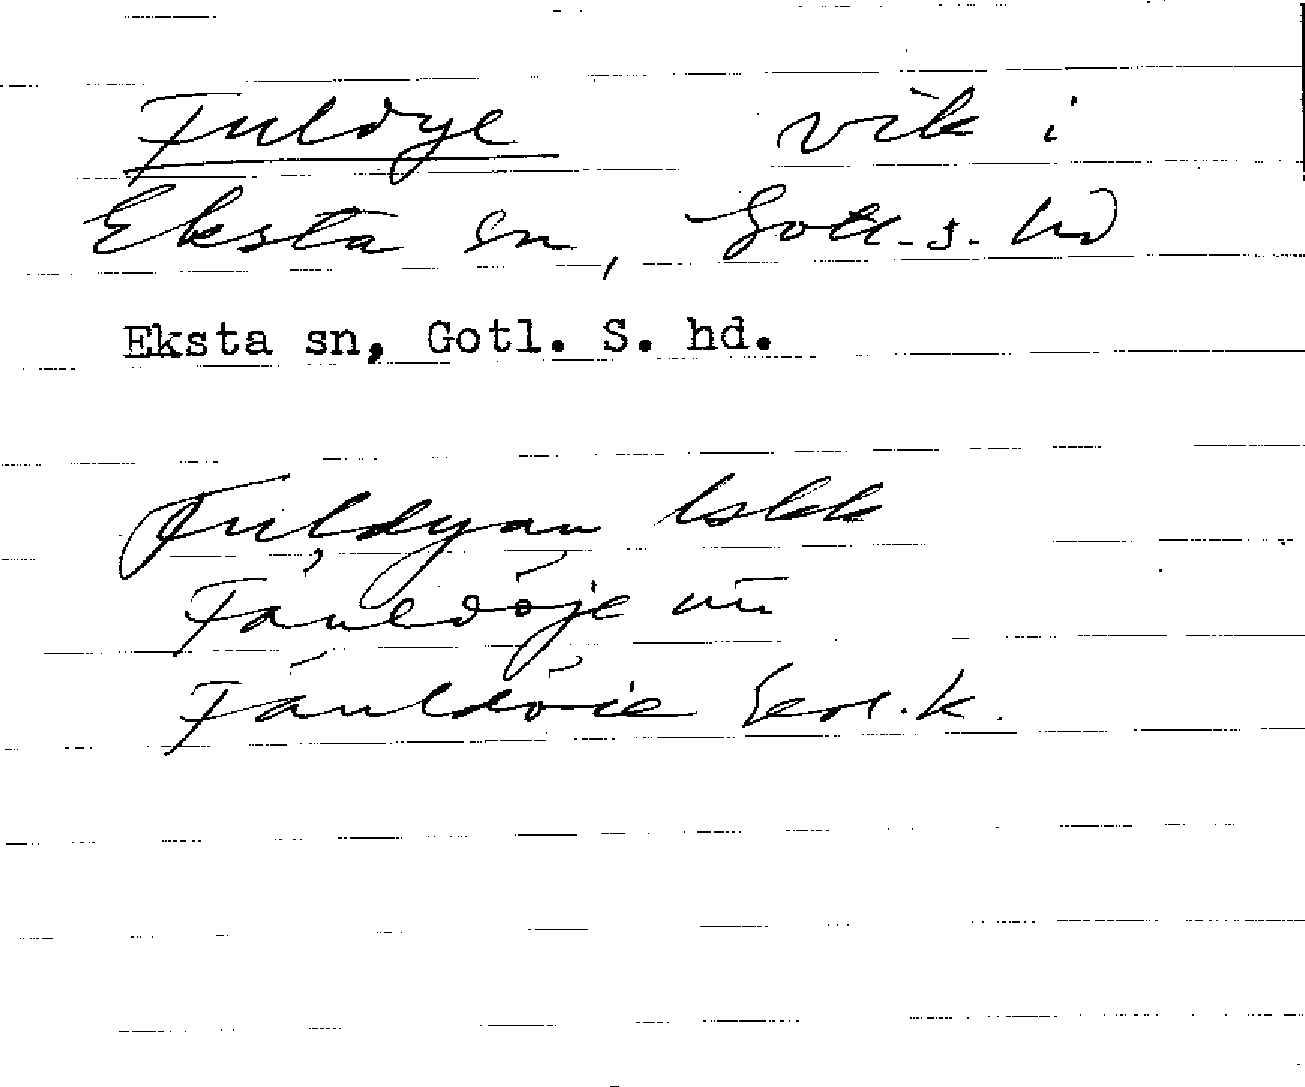 Fuldye vik i
Eksta sn, Gotl. s. hd
Eksta sn, Gotl. S. hd.
Fuldyau
Fauldöje
Fáuldöie Geol. k.